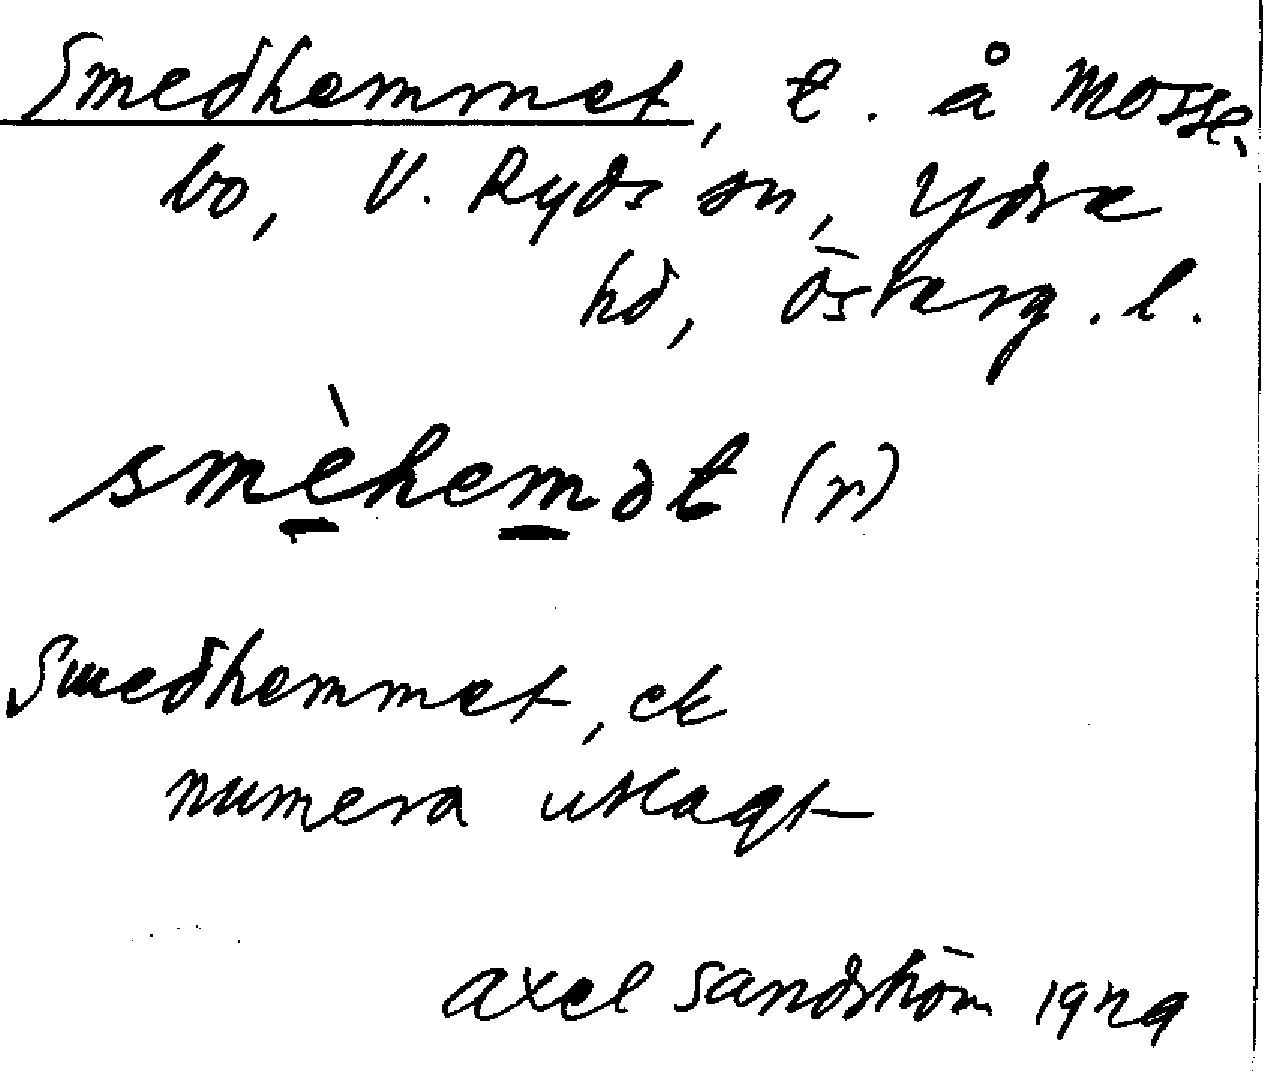 Smedhemmet, t. å Mosse-
bo, V. Ryds sn, Ydre
hd, Österg. l.
smèhemət (r)
Smedhemmet, ek
numera utlagt
Axel Sandström 1929